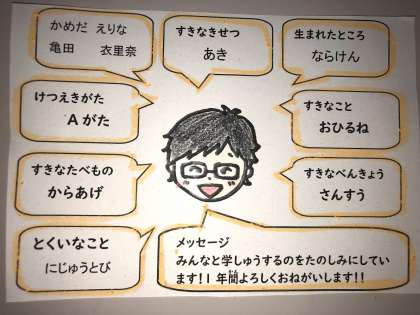 かめだ えりな
亀田 衣里奈
すきなきせつ
あき
生まれたところ
ならけん
けつえきがた
Aがた
すきなこと
おひるね
すきなたべもの
からあげ
すきなべんきょう
さんすう
とくいなこと
にじゅうとび
メッセージ
みんなと学しゅうするのをたのしみにしてい
ます!1年間よろしくおねがいします!!